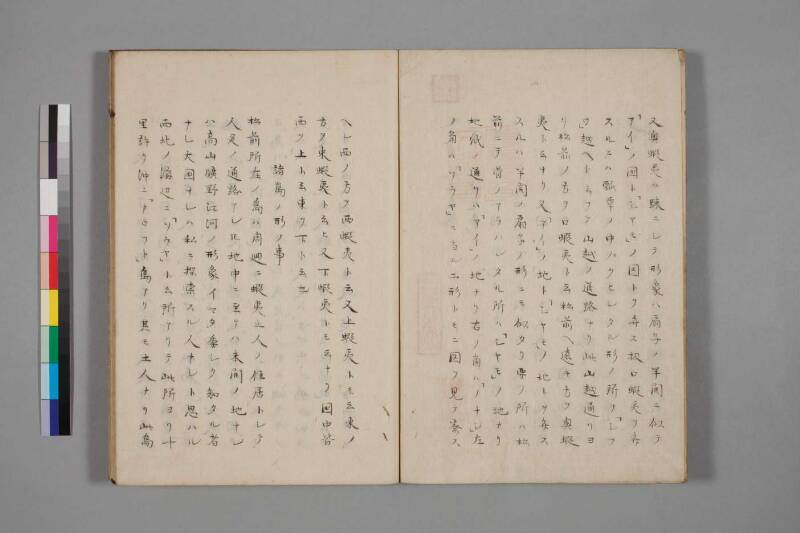 又奥蝦夷ハ跡ニシテ形象ハ扇子ノ半開ニ似テ
「アイノ」国ト「シヤモ」ノ国トヲ弁ス扨口蝦夷ヲ弁
スルニハ瓢箪ノ中ハクヒレタル形ノ所ヲ「シフ
ウ越ヘト云フテ山越ノ道路ナリ此山越通リヨ
リ松前ノ方ヲ口蝦夷ト云松前ヘ遠キ方ヲ奥蝦
夷ト云ナリ又「アイノ」地ト「シヤモ」ノ地トヲ弁ス
スルハ半開ノ扇子ノ形ニモ似タリ要ノ所ハ松
前ニテ骨ノアラハレタル所ハ「シヤモ」ノ地ナリ
地紙ノ通リハ「アイノ」地ナリ右ノ角ハ「ノテレ」左
ノ角ハ「ソウヤ」ニ当ル二形トモニ図ヲ見テ察ス
ヘシ西ノ方ヲ西蝦夷ト云又上蝦夷トモ云東ノ
方ヲ東蝦夷ト云ヒ又下蝦夷トモ云ナリ国中皆
西ヲ上ト云東ヲ下ト云也
諸島ノ形ノ事
松前所在ノ島ハ周廻ニ蝦夷土人ノ住居トシテ
人足ノ通路アレ𪜈地中ニ至リハ未開ノ地ナレ
ハ高山曠野江河ノ形象イマタ委シク知タル者
ナシ大国ナレハ私ニ探索スル人ナシト思ハル
西北ノ海辺ニ「ソウヤ」ト云所アリテ此所ヨリ十
里許リ沖ニ「」島アリ其モ土人ナリ此島